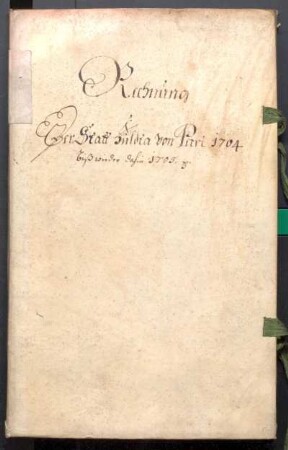 Rechnung
Der Statt Fuldta von Petri 1704
biß wieder dahin 1705.